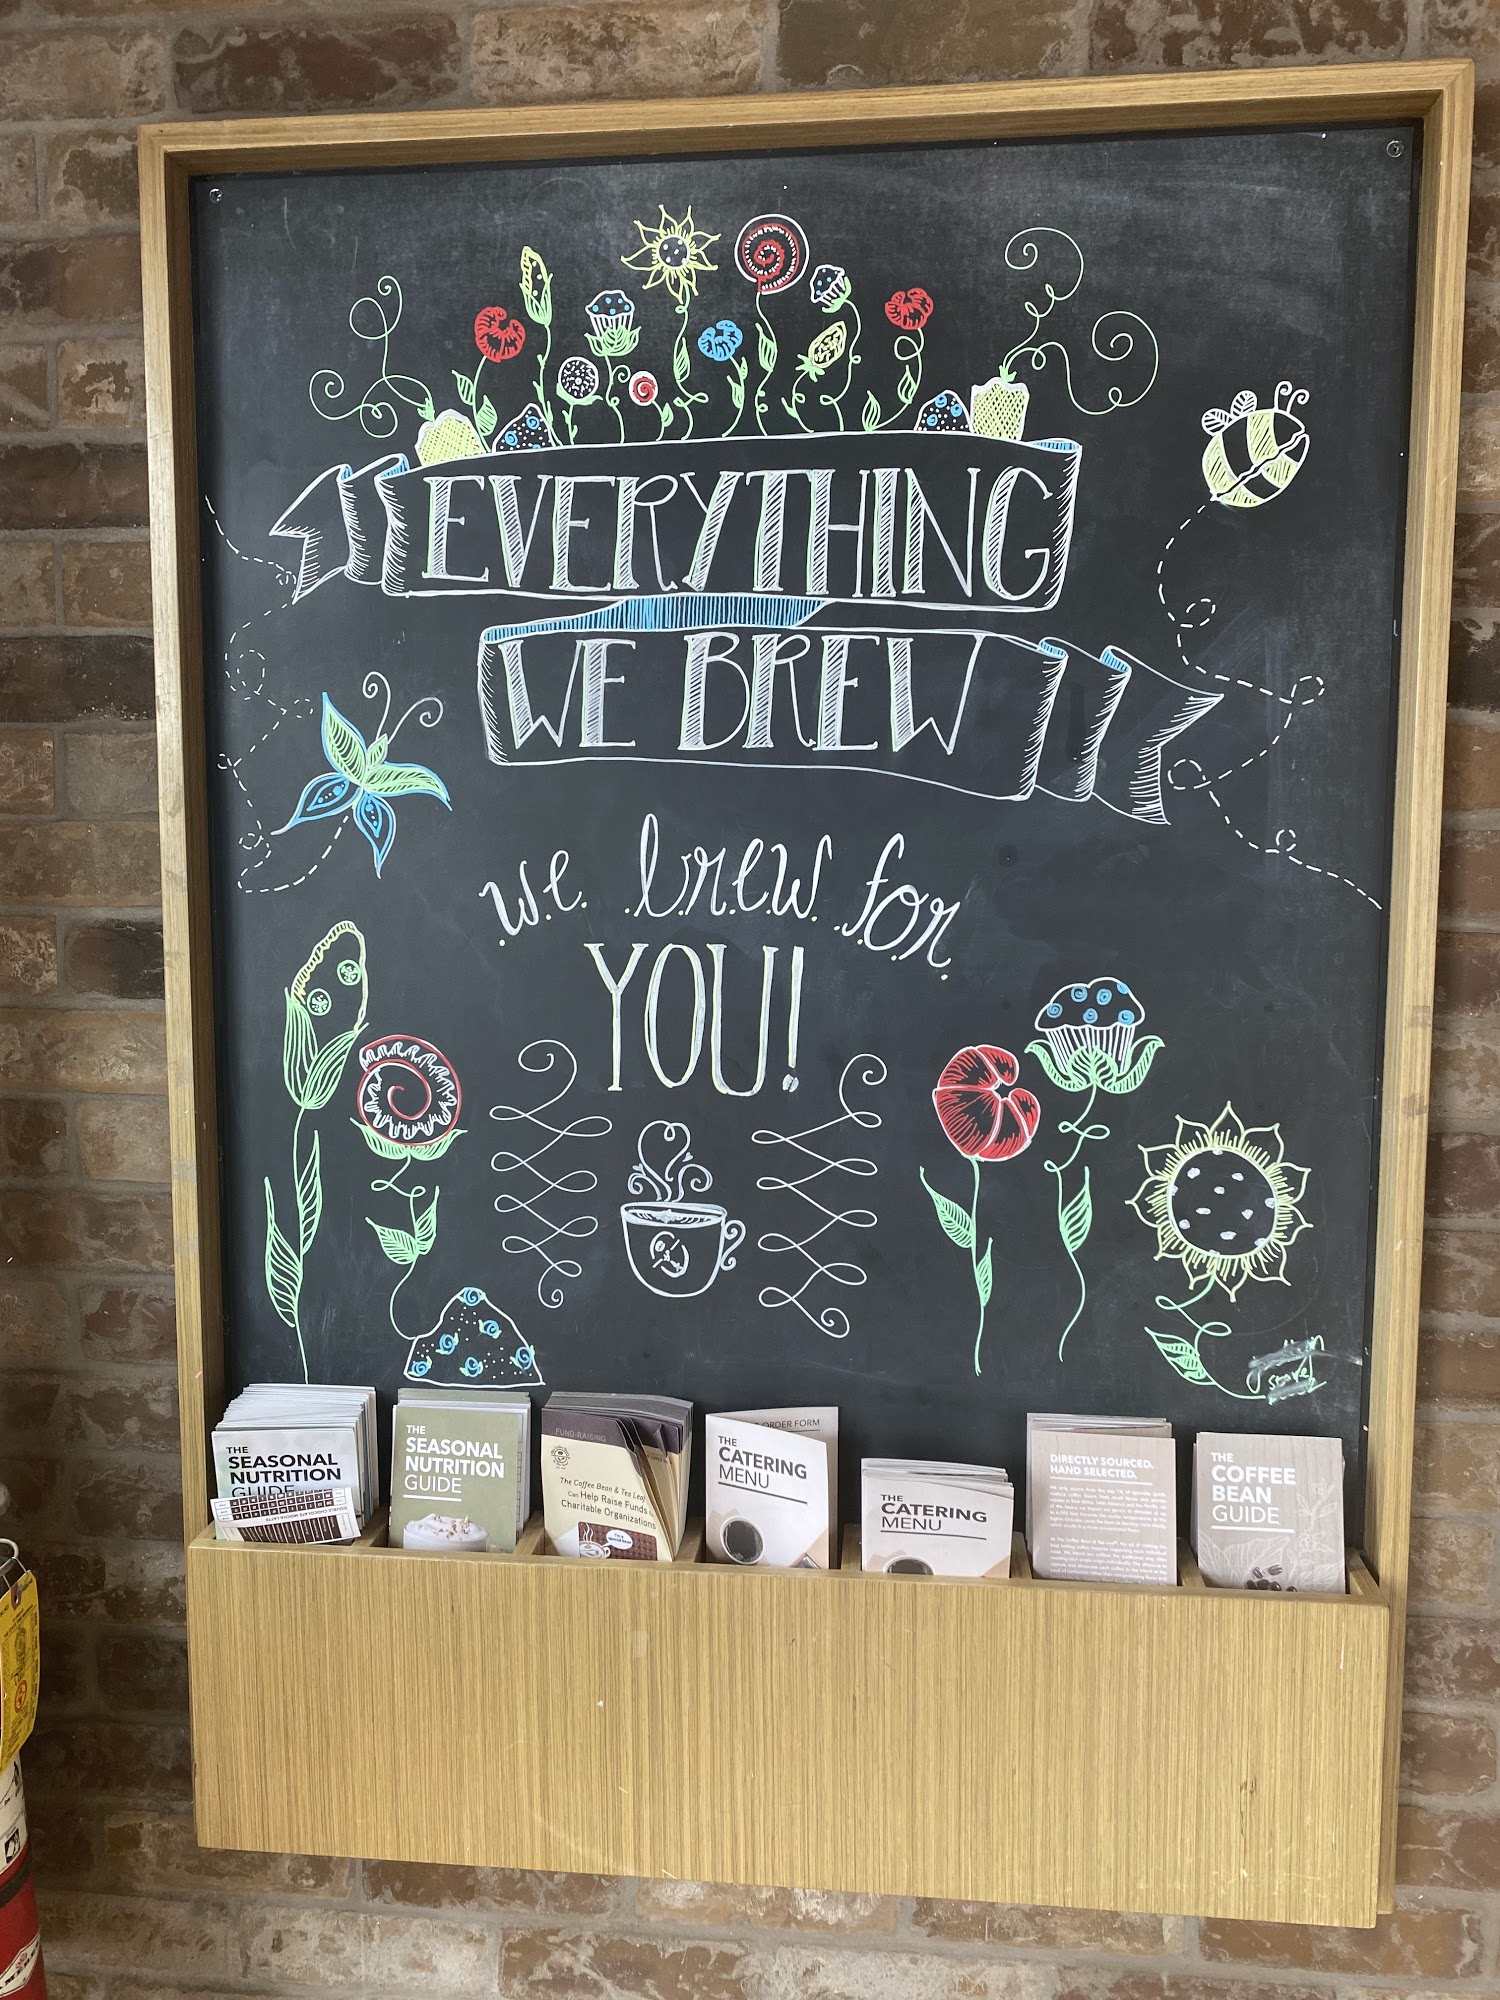 EVERYTHING
WE BREW
we brew for
YOU!
THE
SEASONAL
NUTRITION
GUIDE
DOUBLE CHOCOLATE MOCHA LATTE
THE
SEASONAL
NUTRITION
GUIDE
FUND-RAISING
The Coffee Bean & Tea Leaf
Can Help Raise Funds
Charitable Organizations
ORDER FORM
THE
CATERING
MENU
THE
CATERING
MENU
DIRECTLY SOURCED.
HAND SELECTED.
THE
COFFEE
BEAN
GUIDE